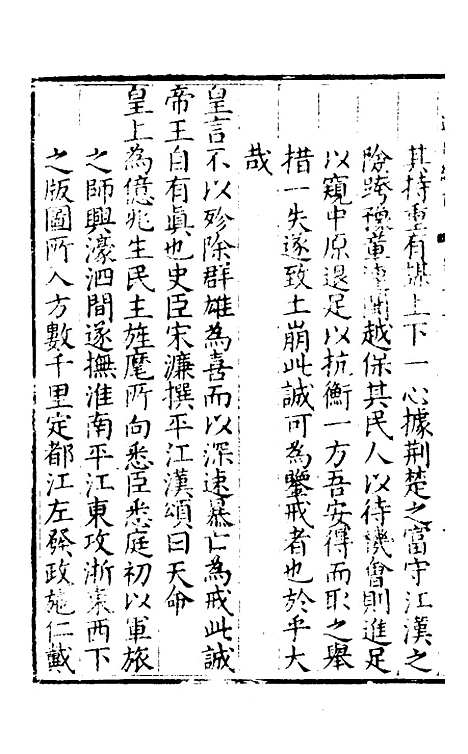 其持重有謀上下一心據荆楚之富守江漢之
險跨豫章連閩越保其民人以待機會則進足
以窺中原退足以抗衡一方吾安得而取之舉
措一失遂致土崩此誠可為鑒戒者也於乎大
哉
皇言不以殄除群雄為喜而以深速暴亡為戒此誠
帝王自有真也史臣宋濂撰平江漢頌曰天命
皇上為億兆生民主旌麾所向悉臣悉庭初以軍旅
之師興濠泗間遂撫淮南平江東攻浙東西下
之版圖所入方數千里定都江左發政施仁戴